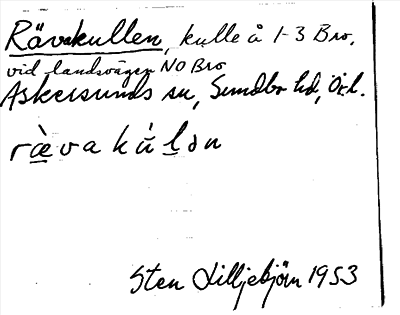 Rävakullen, kulle å 1-3 Bro,
vid landsvägen NO Bro
Askersunds sn, Sundbo hd, Örl.
ræ̀vakúlən
Sten Lilljebjörn 1953